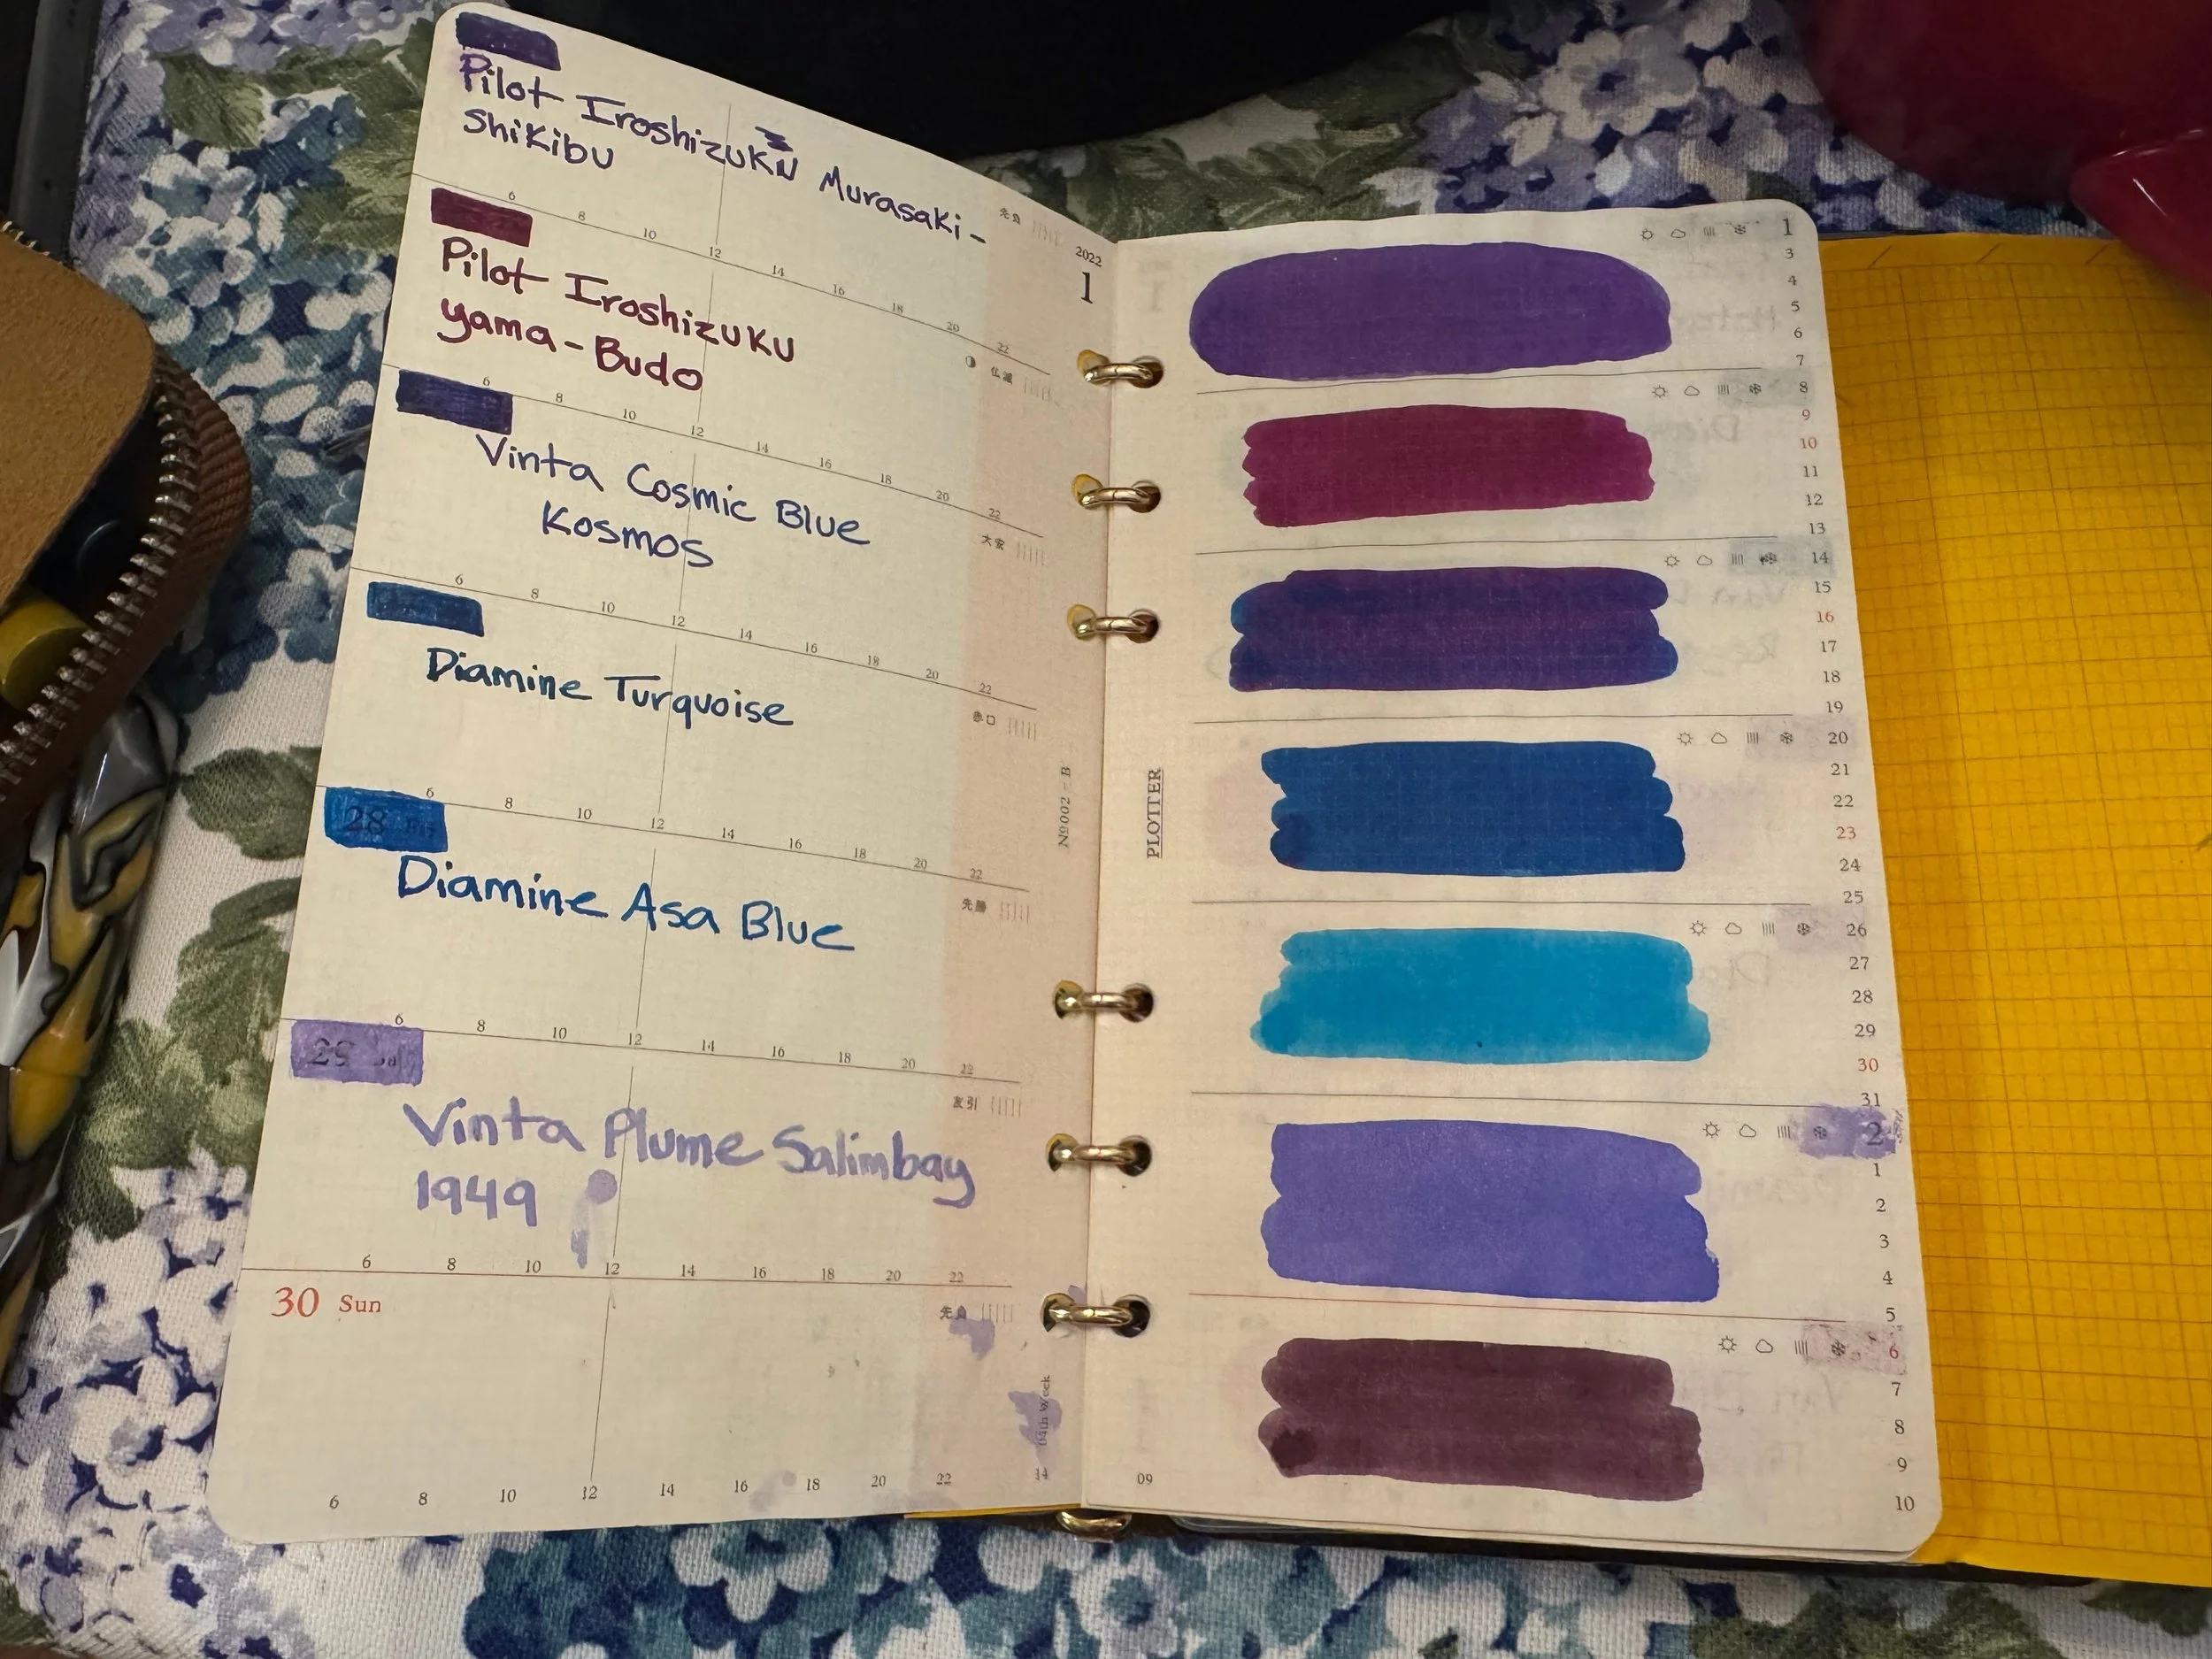 Pilot Iroshizuku Murasaki-
Shikibu
先負
6 8 10 12 14 16 18 20 22
2022
1
Pilot Iroshizuku
yama-Budo
仏滅
6 8 10 12 14 16 18 20 22
Vinta Cosmic Blue
Kosmos
大安
6 8 10 12 14 16 18 20 22
Diamine Turquoise
赤口
6 8 10 12 14 16 18 20 22
28
Diamine Asa Blue
先勝
6 8 10 12 14 16 18 20 22
29 Sat
Vinta Plume Salimbay
1949
友引
6 8 10 12 14 16 18 20 22
30 Sun
先負
6 8 10 12 14 16 18 20 22
04th Week
14
Nº002 - B
PLOTTER
09
1
3
4
5
6
7
8
9
10
11
12
13
14
15
16
17
18
19
20
21
22
23
24
25
26
27
28
29
30
31
2
1
2
3
4
5
6
7
8
9
10